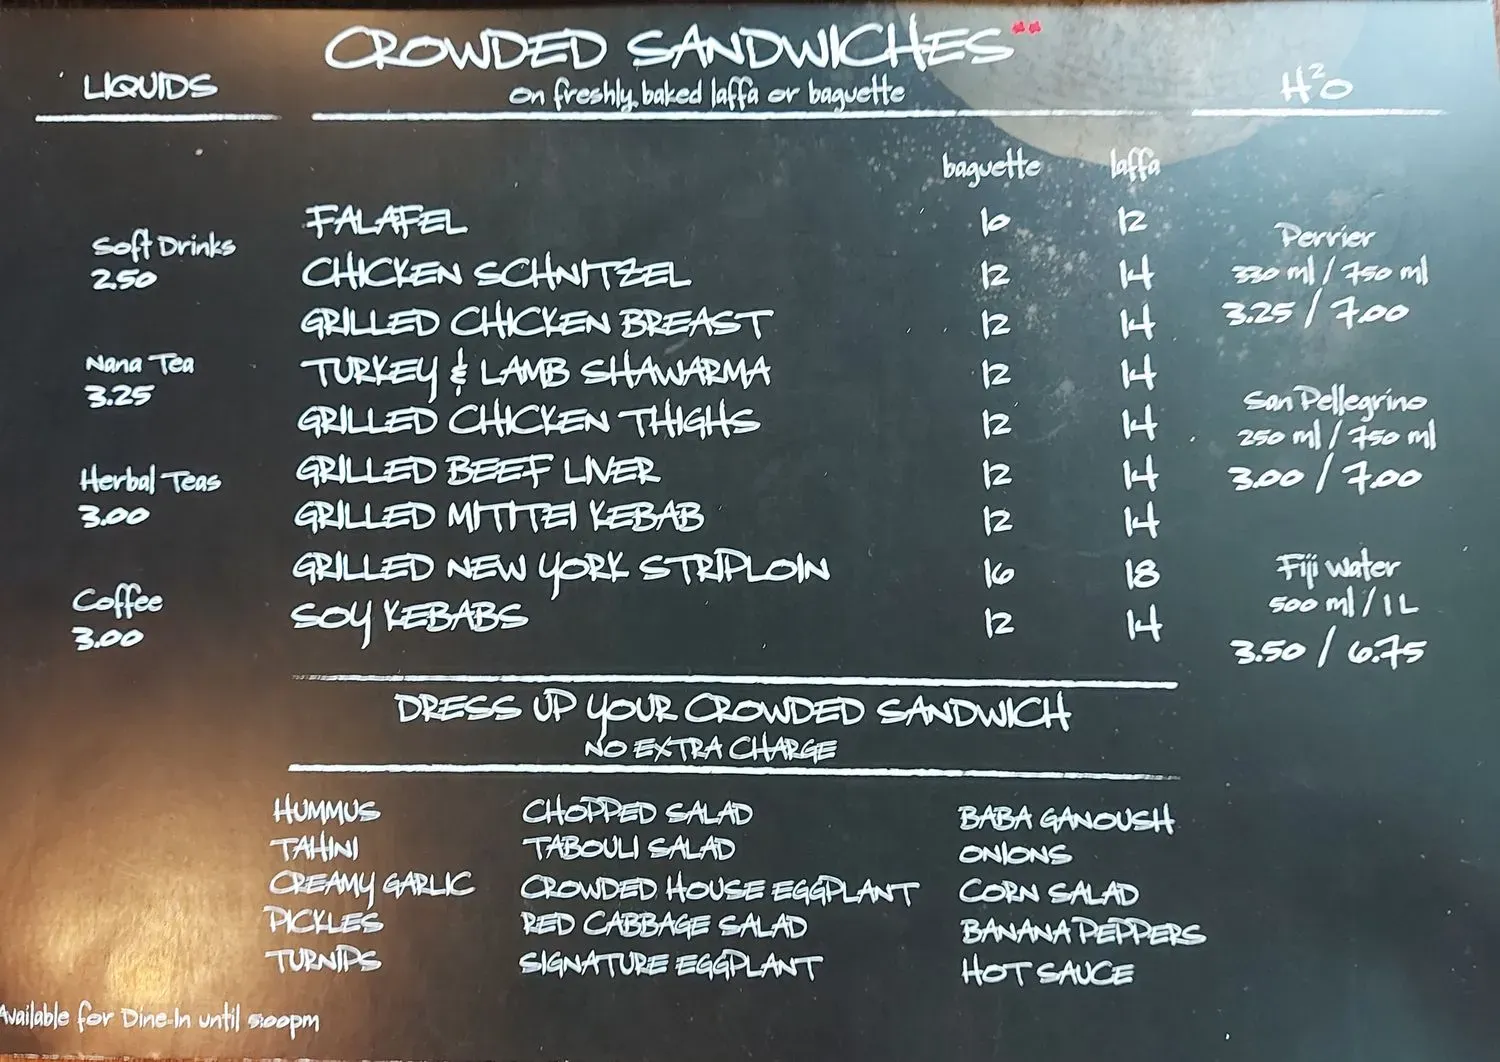 CROWDED SANDWICHES**
on freshly baked laffa or baguette
LIQUIDS
Soft Drinks
2.50
Nana Tea
3.25
Herbal Teas
3.00
Coffee
3.00
baguette laffa
FALAFEL 10 12
CHICKEN SCHNITZEL 12 14
GRILLED CHICKEN BREAST 12 14
TURKEY & LAMB SHAWARMA 12 14
GRILLED CHICKEN THIGHS 12 14
GRILLED BEEF LIVER 12 14
GRILLED MITITEI KEBAB 12 14
GRILLED NEW YORK STRIPLOIN 16 18
SOY KEBABS 12 14
H²O
Perrier
330 ml / 750 ml
3.25 / 7.00
San Pellegrino
250 ml / 750 ml
3.00 / 7.00
Fiji water
500 ml / 1 L
3.50 / 6.75
DRESS UP YOUR CROWDED SANDWICH
NO EXTRA CHARGE
HUMMUS CHOPPED SALAD BABA GANOUSH
TAHINI TABOULI SALAD ONIONS
CREAMY GARLIC CROWDED HOUSE EGGPLANT CORN SALAD
PICKLES RED CABBAGE SALAD BANANA PEPPERS
TURNIPS SIGNATURE EGGPLANT HOT SAUCE
Available for Dine-In until 5:00pm